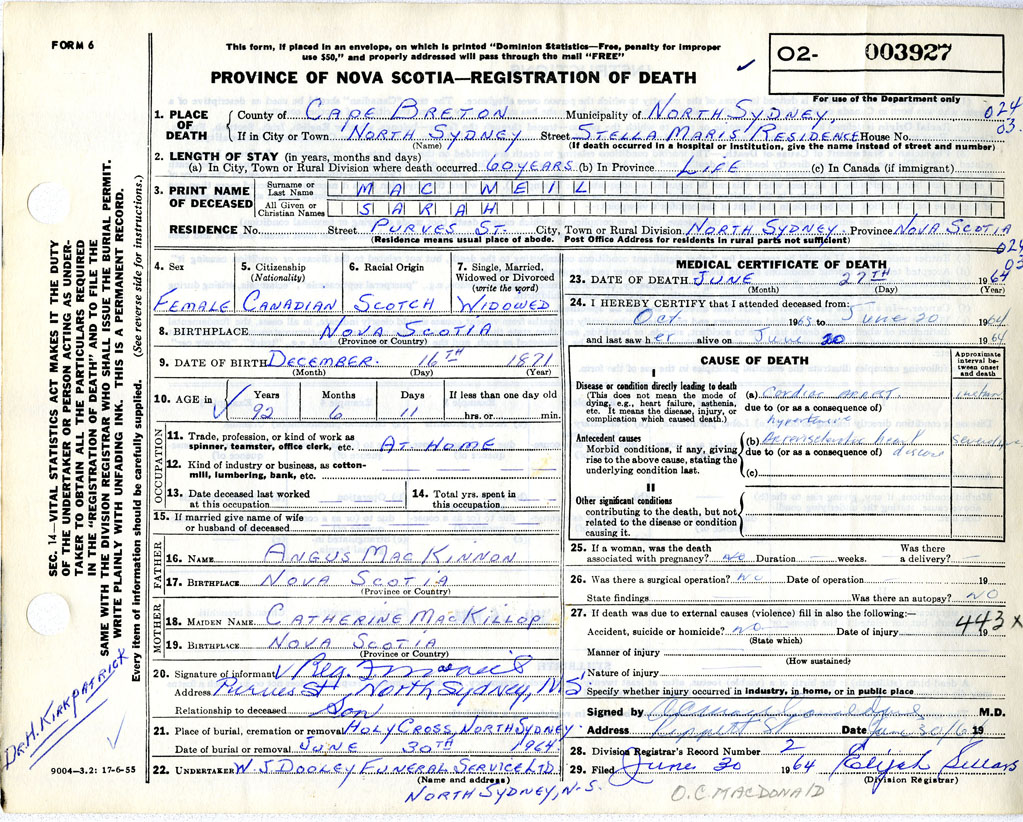 FORM 6
This form, if placed in an envelope, on which is printed "Dominion Statistics—Free, penalty for improper
use $50," and properly addressed will pass through the mail "FREE"
PROVINCE OF NOVA SCOTIA—REGISTRATION OF DEATH
02- 003927
For use of the Department only
024
03.
1. PLACE OF DEATH
County of CAPE BRETON Municipality of NORTH SYDNEY,
If in City or Town NORTH SYDNEY Street STELLA MARIS RESIDENCE House No.
(Name) (If death occurred in a hospital or institution, give the name instead of street and number)
2. LENGTH OF STAY (in years, months and days)
(a) In City, Town or Rural Division where death occurred 60 YEARS (b) In Province LIFE (c) In Canada (if immigrant)
3. PRINT NAME OF DECEASED
Surname or Last Name MAC NEIL
All Given or Christian Names SARAH
RESIDENCE No. Street PURVES ST. City, Town or Rural Division NORTH SYDNEY Province NOVA SCOTIA
(Residence means usual place of abode. Post Office Address for residents in rural parts not sufficient)
024
03
4. Sex FEMALE
5. Citizenship (Nationality) CANADIAN
6. Racial Origin SCOTCH
7. Single, Married, Widowed or Divorced (write the word) WIDOWED
8. BIRTHPLACE NOVA SCOTIA
(Province or Country)
9. DATE OF BIRTH DECEMBER 16TH 1871
(Month) (Day) (Year)
10. AGE in Years 92 Months 6 Days 11 If less than one day old
hrs. or min.
OCCUPATION
11. Trade, profession, or kind of work as
spinner, teamster, office clerk, etc. AT HOME
12. Kind of industry or business, as cotton-
mill, lumbering, bank, etc.
13. Date deceased last worked at this occupation
14. Total yrs. spent in this occupation
15. If married give name of wife
or husband of deceased
FATHER
16. NAME ANGUS MACKINNON
17. BIRTHPLACE NOVA SCOTIA
(Province or Country)
MOTHER
18. MAIDEN NAME CATHERINE MACKILLOP
19. BIRTHPLACE NOVA SCOTIA
(Province or Country)
20. Signature of informant
Address Purves St, North Sydney, NS
Relationship to deceased Son
21. Place of burial, cremation or removal HOLY CROSS, NORTH SYDNEY
Date of burial or removal JUNE 30TH 1964
22. UNDERTAKER W J DOOLEY FUNERAL SERVICE LTD.
(Name and address)
NORTH SYDNEY, N.S.
MEDICAL CERTIFICATE OF DEATH
23. DATE OF DEATH JUNE 27TH 1964
(Month) (Day) (Year)
24. I HEREBY CERTIFY that I attended deceased from:
Oct 1963 to June 20 1964
and last saw her alive on June 20 1964
CAUSE OF DEATH
Approximate interval between onset and death
I
Disease or condition directly leading to death
(This does not mean the mode of
dying, e.g., heart failure, asthenia,
etc. It means the disease, injury, or
complication which caused death.)
(a) Cardiac arrest
due to (or as a consequence of)
hypertensive
Antecedent causes
Morbid conditions, if any, giving
rise to the above cause, stating the
underlying condition last.
(b) Arteriosclerotic heart
due to (or as a consequence of) disease
(c)
II
Other significant conditions
contributing to the death, but not
related to the disease or condition
causing it.
25. If a woman, was the death
associated with pregnancy? NO Duration weeks. Was there a delivery?
26. Was there a surgical operation? NO Date of operation 19
State findings Was there an autopsy? NO
27. If death was due to external causes (violence) fill in also the following:—
443x
Accident, suicide or homicide? NO Date of injury 19
(State which)
Manner of injury
(How sustained)
Nature of injury
Specify whether injury occurred in industry, in home, or in public place
Signed by M.D.
Address Date June 30/64 19
28. Division Registrar's Record Number 2
29. Filed June 30 1964 Elijah
(Division Registrar)
O.C. MACDONALD
SEC. 14—VITAL STATISTICS ACT MAKES IT THE DUTY
OF THE UNDERTAKER OR PERSON ACTING AS UNDER-
TAKER TO OBTAIN ALL THE PARTICULARS REQUIRED
IN THE "REGISTRATION OF DEATH" AND TO FILE THE
SAME WITH THE DIVISION REGISTRAR WHO SHALL ISSUE THE BURIAL PERMIT.
WRITE PLAINLY WITH UNFADING INK. THIS IS A PERMANENT RECORD.
Every item of information should be carefully supplied. (See reverse side for instructions.)
DR. H. KIRKPATRICK
9004-3.2: 17-6-55